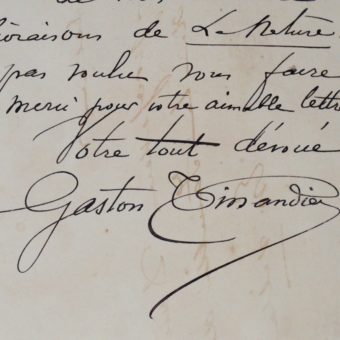 livraisons de La Nature
pas voulu vous faire
merci pour votre aimable lettre
Votre tout dévoué
Gaston Tissandier